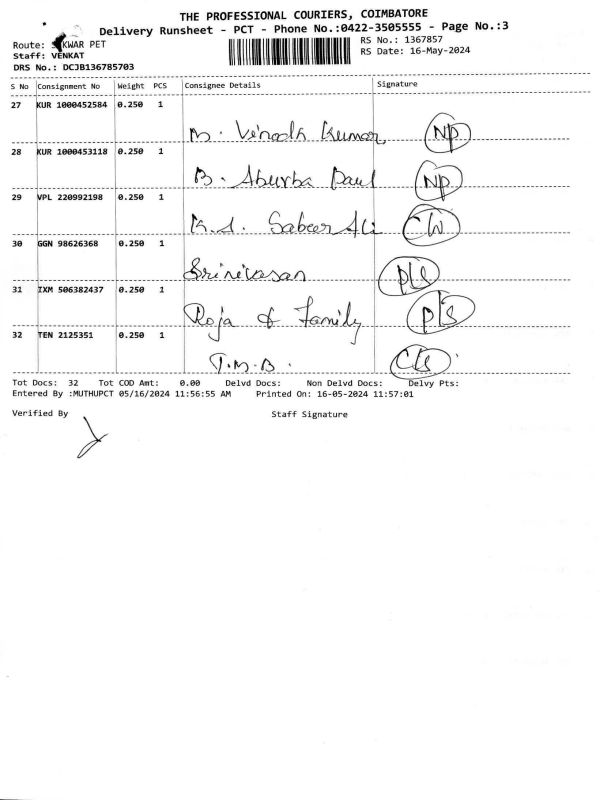 THE PROFESSIONAL COURIERS, COIMBATORE
Delivery Runsheet - PCT - Phone No.:0422-3505555 - Page No.:3
Route: KWAR PET
RS No.: 1367857
Staff: VENKAT
RS Date: 16-May-2024
DRS No.: DCJB136785703
S No Consignment No Weight PCS Consignee Details Signature
27 KUR 1000452584 0.250 1
M. Vinoth Kumar NP
28 KUR 1000453118 0.250 1
B. Aburba Paul NP
29 VPL 220992198 0.250 1
K.S. Sabeer Ali
30 GGN 98626368 0.250 1
Srinivasan
31 IXM 506382437 0.250 1
Roja & Family
32 TEN 2125351 0.250 1
T.M.B.
Tot Docs: 32 Tot COD Amt: 0.00 Delvd Docs: Non Delvd Docs: Delvy Pts:
Entered By :MUTHUPCT 05/16/2024 11:56:55 AM Printed On: 16-05-2024 11:57:01
Verified By Staff Signature